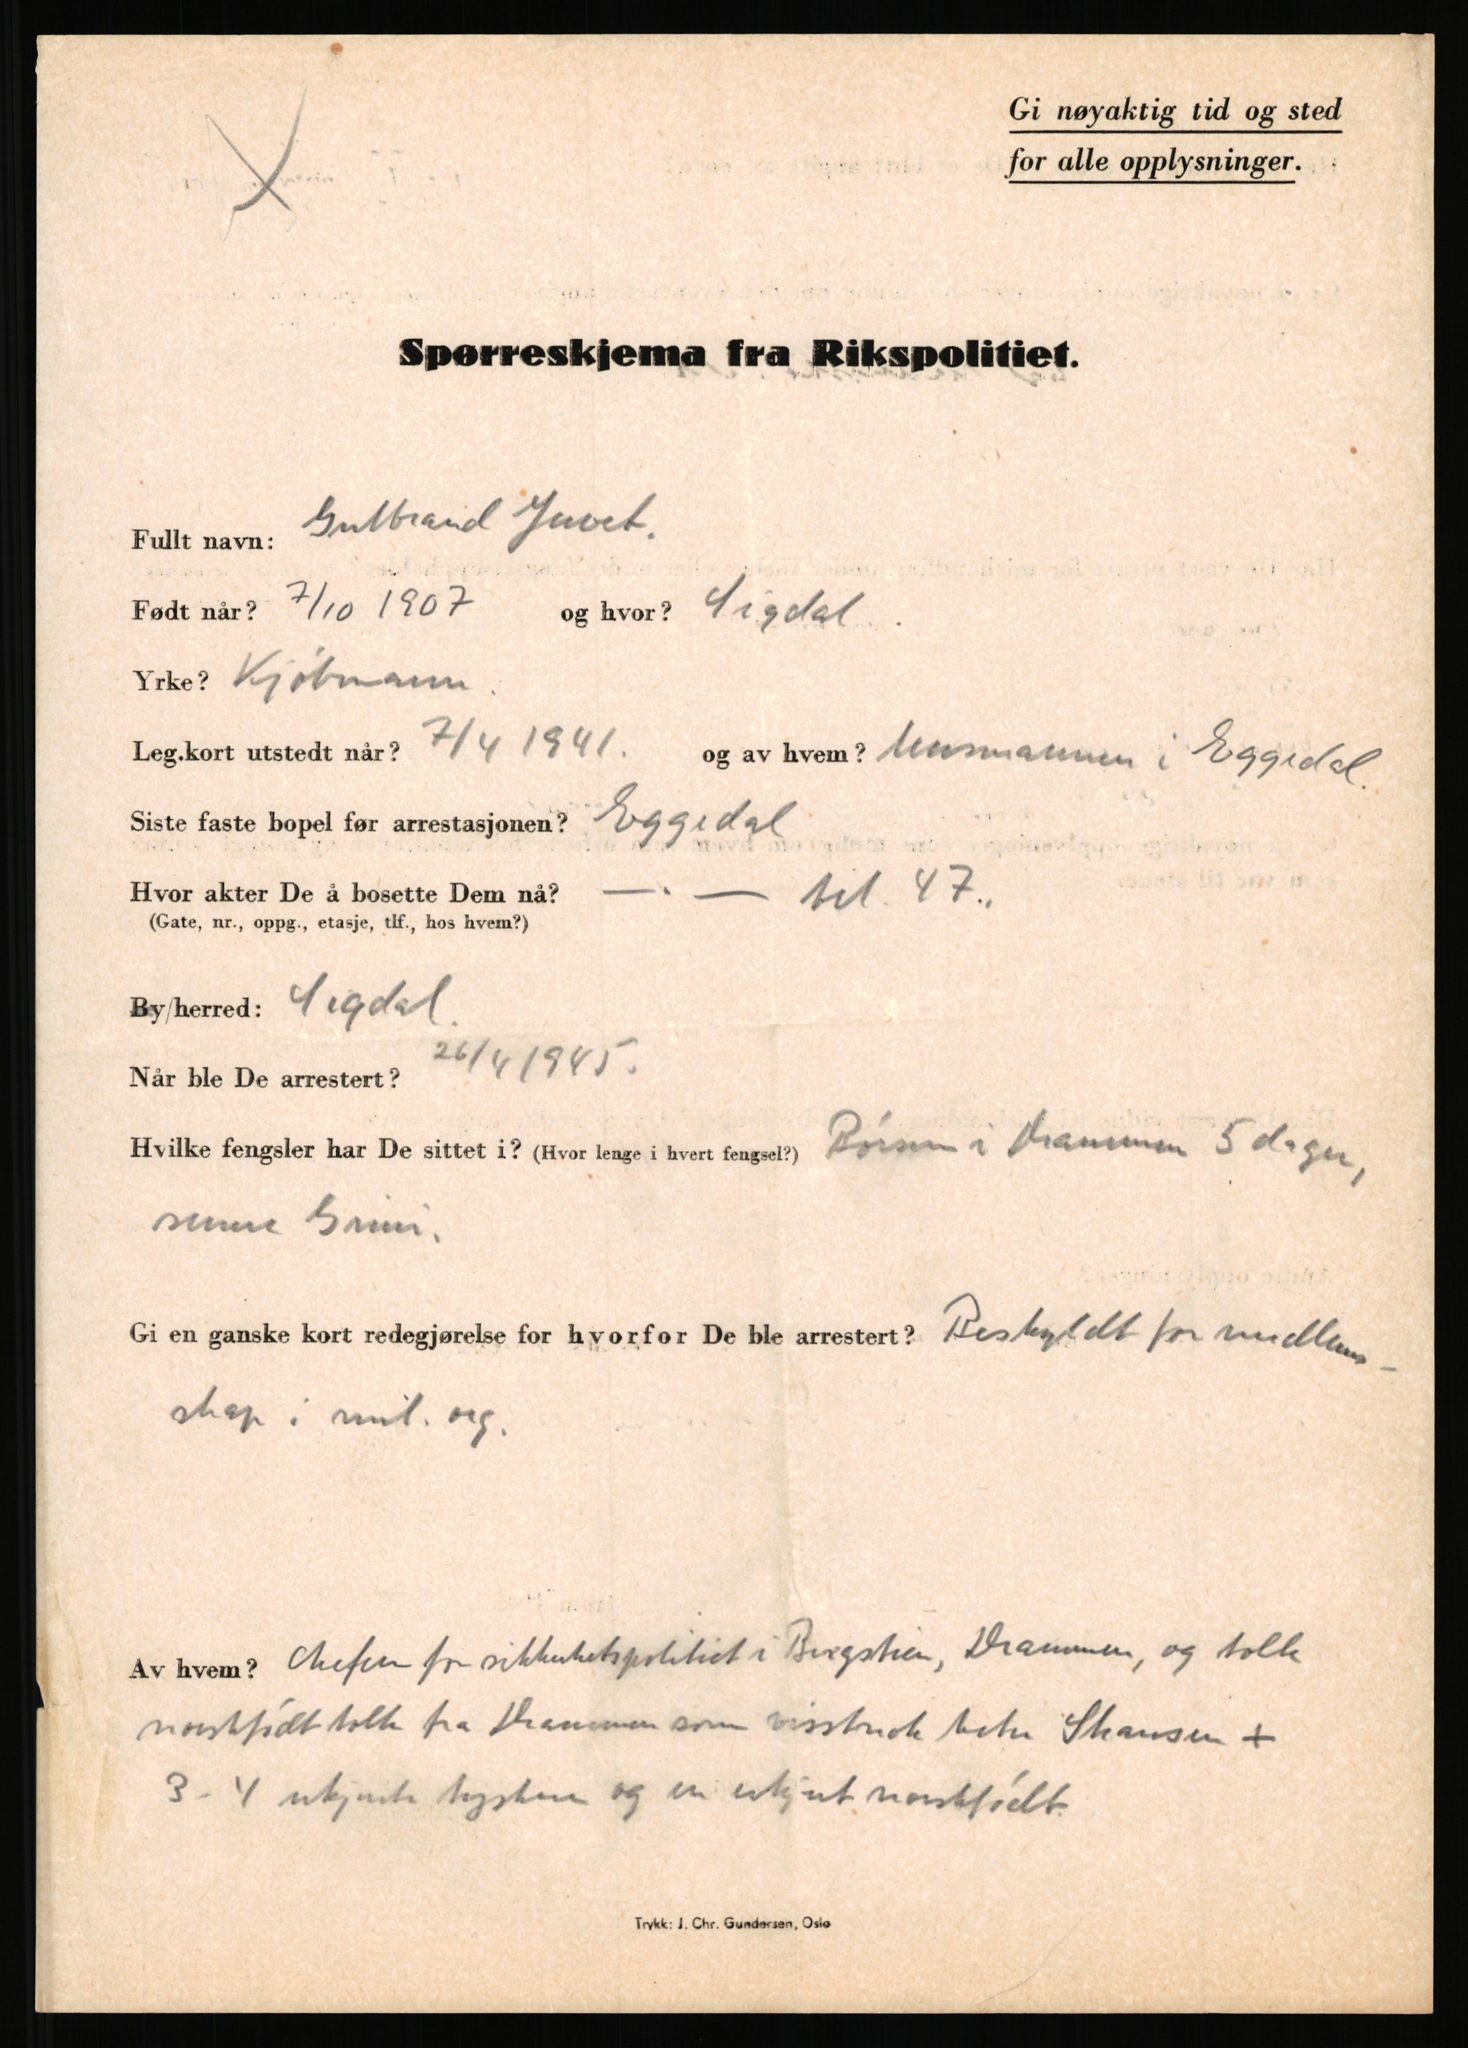 Gi nøyaktig tid og sted
for alle opplysninger.
Spørreskjema fra Rikspolitiet.
Fullt navn: Gulbrand Juvet.
Født når? 7/10 1907 og hvor? Sigdal.
Yrke? Kjøbmann.
Leg.kort utstedt når? 7/4 1941. og av hvem? lensmannen i Eggedal.
Siste faste bopel før arrestasjonen? Eggedal
Hvor akter De å bosette Dem nå? —·— tel. 47.
(Gate, nr., oppg., etasje, tlf., hos hvem?)
By/herred: Sigdal.
Når ble De arrestert? 26/4 1945.
Hvilke fengsler har De sittet i? (Hvor lenge i hvert fengsel?) Börsen i Drammen 5 dager,
senere Grini.
Gi en ganske kort redegjørelse for hvorfor De ble arrestert? Beskyldt for medlems-
skap i mil. org.
Av hvem? Chefen for sikkerhetspolitiet i Bergstien, Drammen, og tolk
norskfödt tolk fra Drammen som visstnok heter Skansen +
3-4 ukjente tyskere og en ukjent norskfödt.
Trykk: J. Chr. Gundersen, Oslo